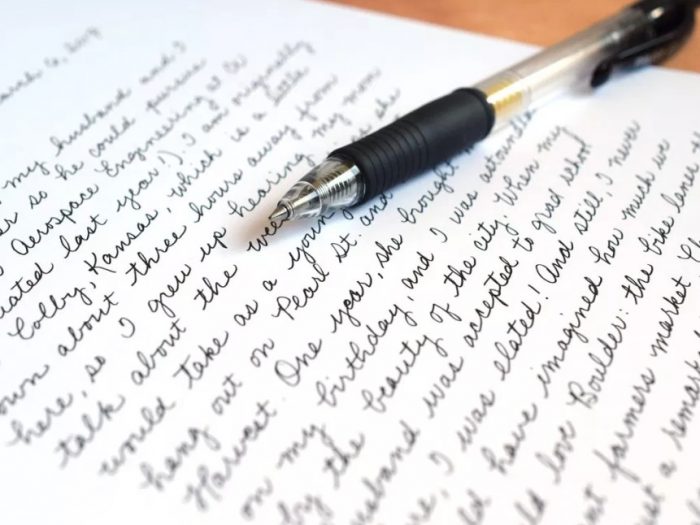 my husband and I
so he could pursue
Aerospace Engineering at CU
uated last year!). I am originally
Colby, Kansas, which is a little
own about three hours away from
here, so I grew up hearing my mom
talk about the wee she
would take as a young
hang out on Pearl St. and
Harvest. One year, she brought
on my birthday, and I was astounde
by the beauty of the city. When my
usband was accepted to grad school
re, I was elated! And still, I never
ld have imagined how much we
ld love Boulder: the bike lanes
nt farmers market
a remark